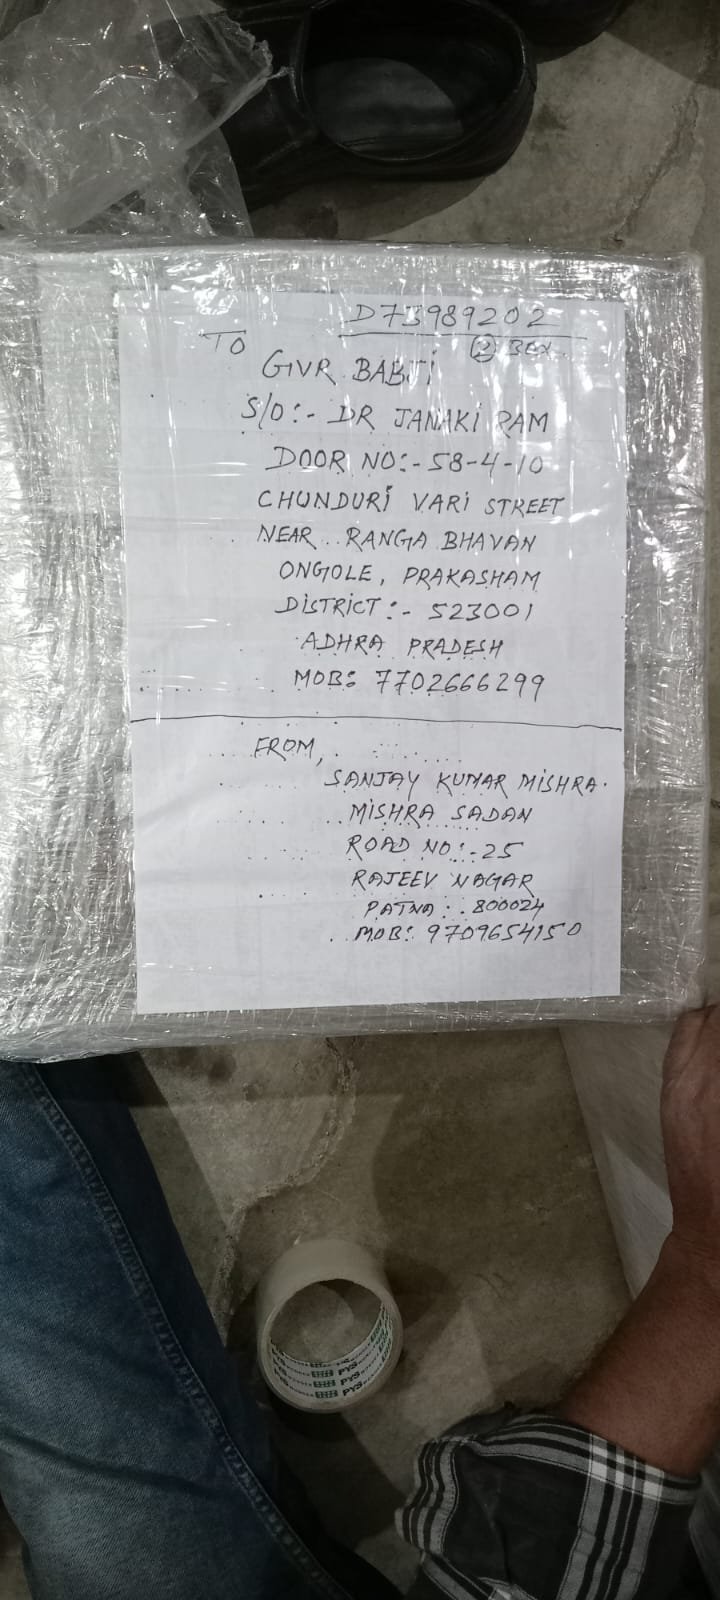 D73989202
② BOX
TO
GIVR BABJi
S/O:- DR JANAKi RAM
DOOR NO:- 58-4-10
CHUNDURi VARi STREET
NEAR RANGA BHAVAN
ONGOLE, PRAKASHAM
DiSTRiCT:- 523001
ADHRA PRADESH
MOB: 7702666299
FROM,
SANJAY KUMAR MiSHRA.
MiSHRA SADAN
ROAD NO:-25
RAJEEV NAGAR
PATNA: 800024
MOB: 9709654150
PYS
PYS
PYS